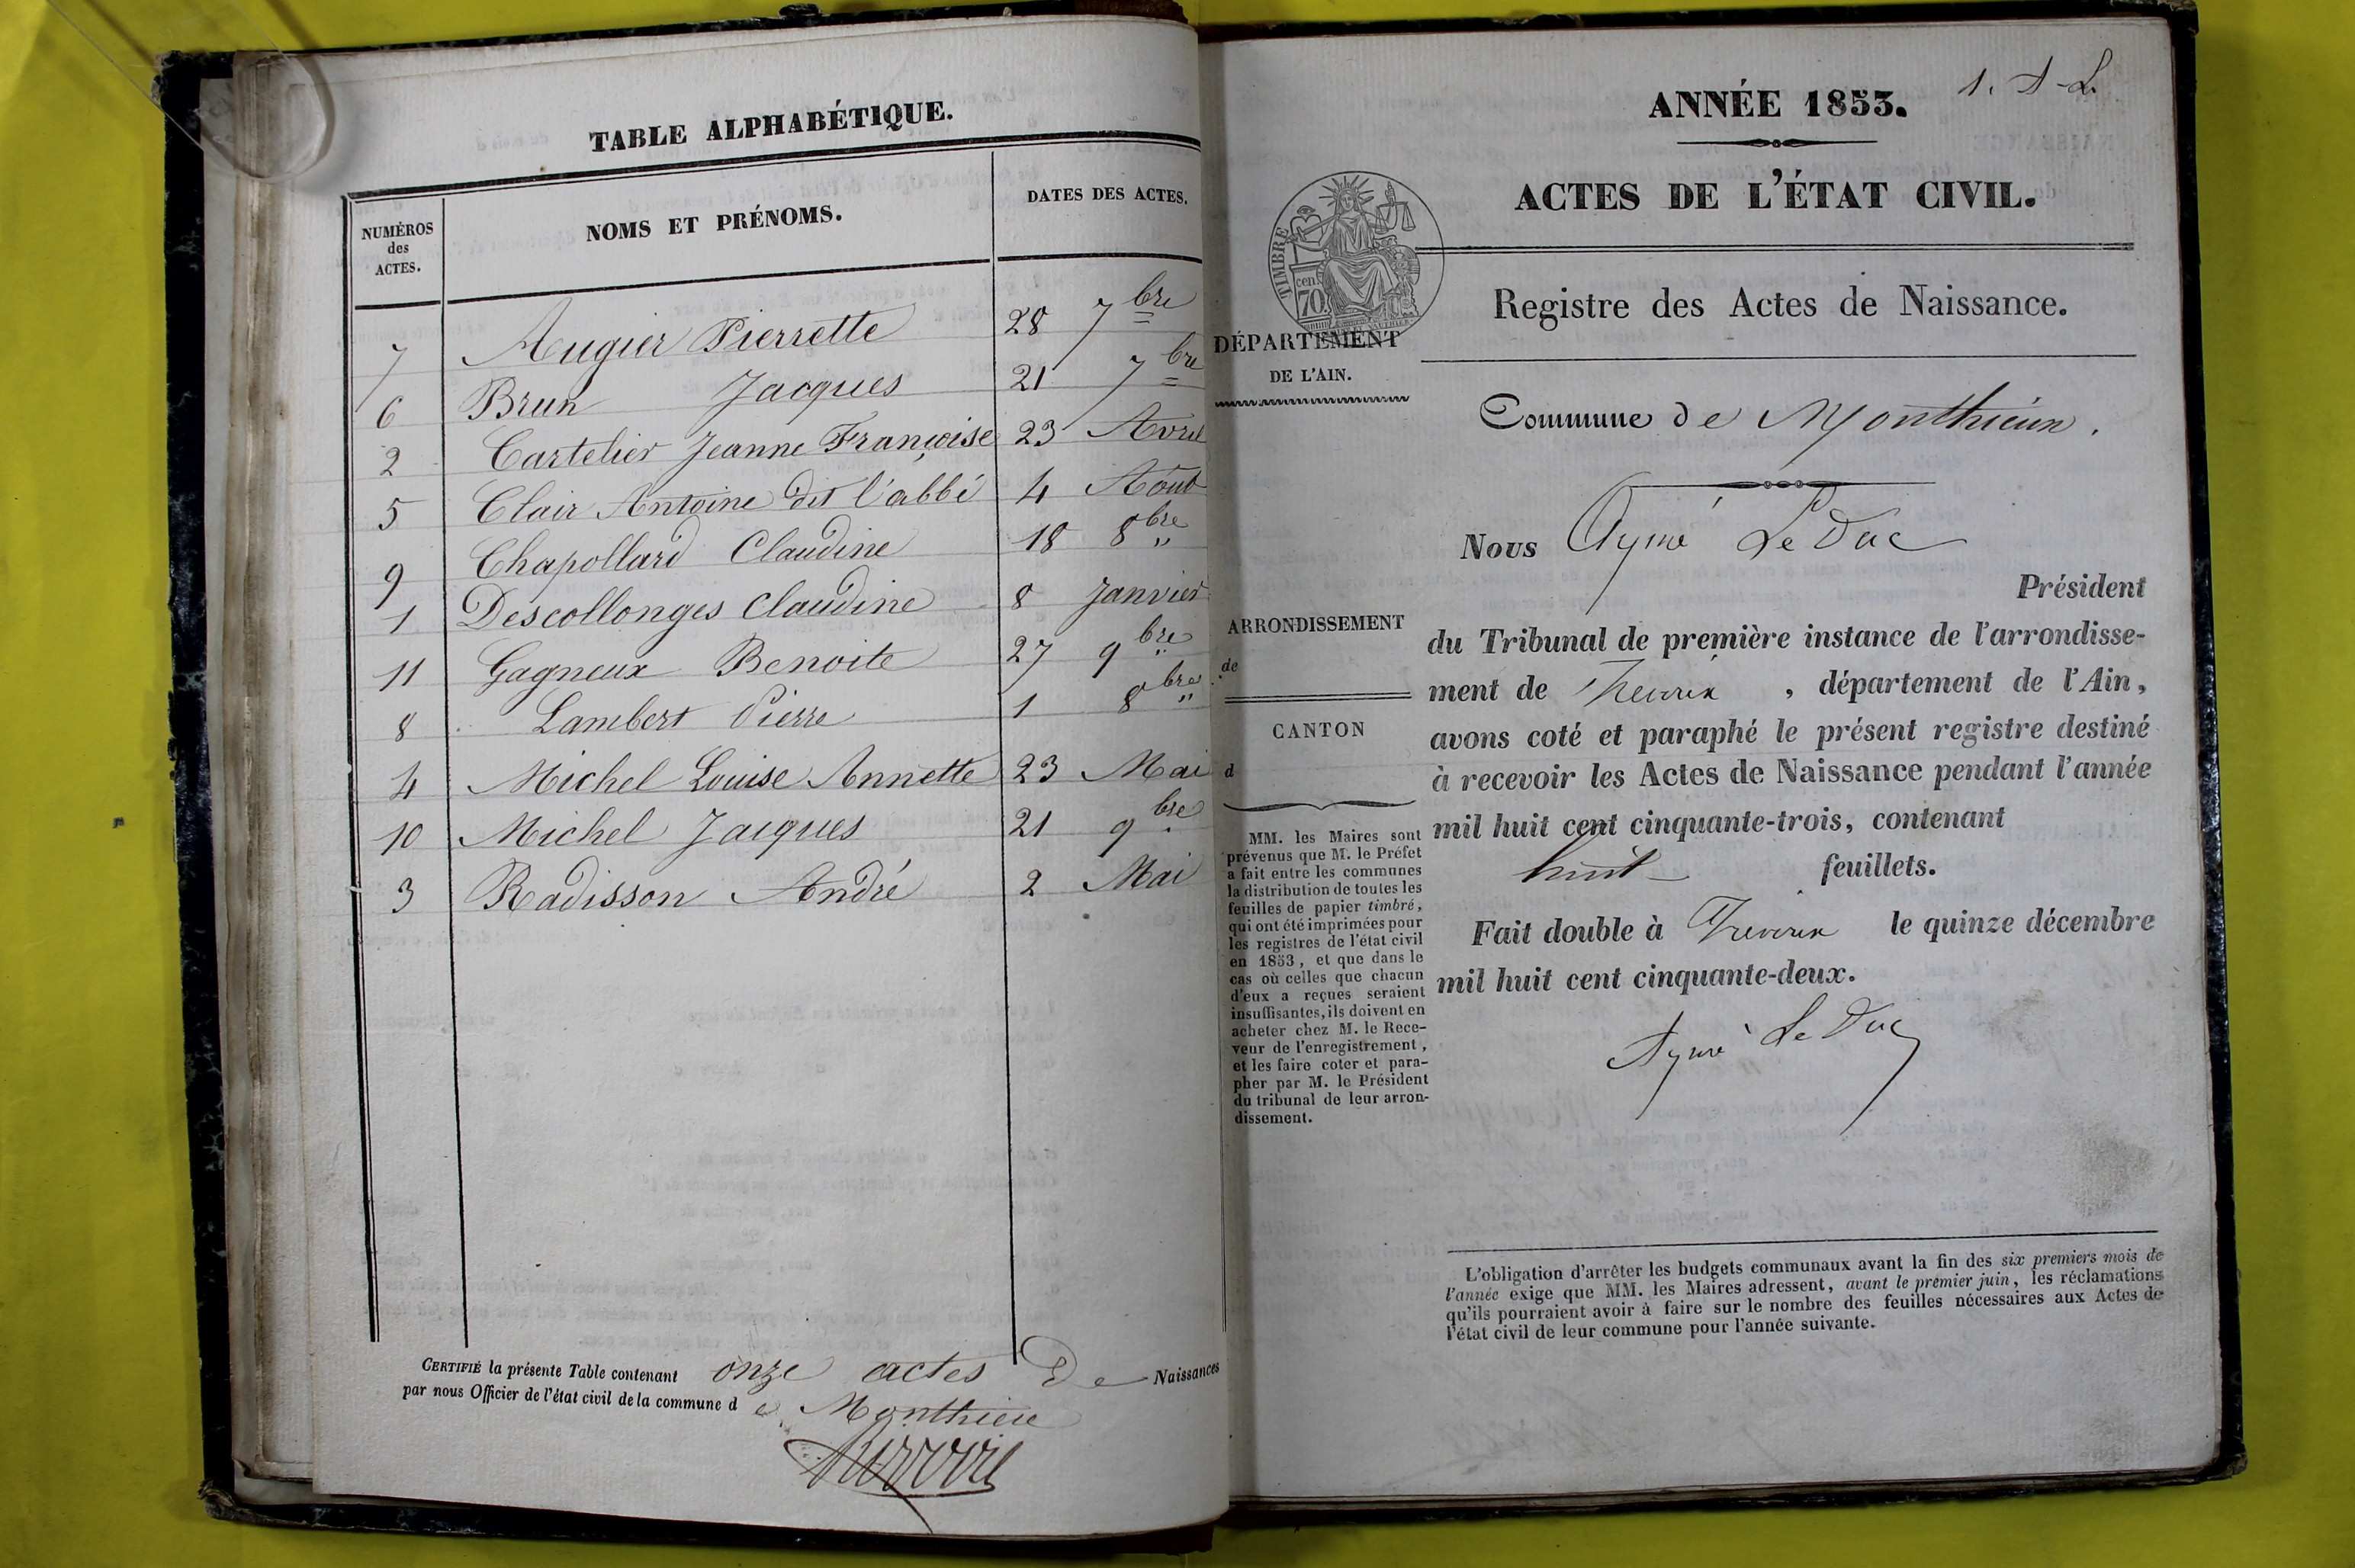 TABLE ALPHABÉTIQUE.
NUMÉROS des ACTES.
NOMS ET PRÉNOMS.
DATES DES ACTES.
7 Augier Pierrette 28 7bre
6 Brun Jacques 21 7bre
2 Cartelier Jeanne Françoise 23 Avril
5 Clair Antoine dit l'abbé 4 Août
9 Chapollard Claudine 18 8bre
1 Descollonges Claudine 8 Janvier
11 Gagneux Benoite 27 9bre
8 Lambert Pierre 1 8bre
4 Michel Louise Annette 23 Mai
10 Michel Jacques 21 9bre
3 Radisson André 2 Mai
CERTIFIÉ la présente Table contenant onze actes De Naissances
par nous Officier de l'état civil de la commune de Monthieu
1. A-L
ANNÉE 1853.
ACTES DE L'ÉTAT CIVIL.
TIMBRE
cen.
70.
Registre des Actes de Naissance.
DÉPARTEMENT
DE L'AIN.
Commune de Monthieux.
Nous Aymé Le Duc
Président
ARRONDISSEMENT
de
CANTON
d
du Tribunal de première instance de l'arrondisse-
ment de Trevoux, département de l'Ain,
avons coté et paraphé le présent registre destiné
à recevoir les Actes de Naissance pendant l'année
mil huit cent cinquante-trois, contenant
huit feuillets.
Fait double à Trevoux le quinze décembre
mil huit cent cinquante-deux.
Aymé Le Duc
MM. les Maires sont
prévenus que M. le Préfet
a fait entre les communes
la distribution de toutes les
feuilles de papier timbré,
qui ont été imprimées pour
les registres de l'état civil
en 1853, et que dans le
cas où celles que chacun
d'eux a reçues seraient
insuffisantes, ils doivent en
acheter chez M. le Rece-
veur de l'enregistrement,
et les faire coter et para-
pher par M. le Président
du tribunal de leur arron-
dissement.
L'obligation d'arrêter les budgets communaux avant la fin des six premiers mois de
l'année exige que MM. les Maires adressent, avant le premier juin, les réclamations
qu'ils pourraient avoir à faire sur le nombre des feuilles nécessaires aux Actes de
l'état civil de leur commune pour l'année suivante.